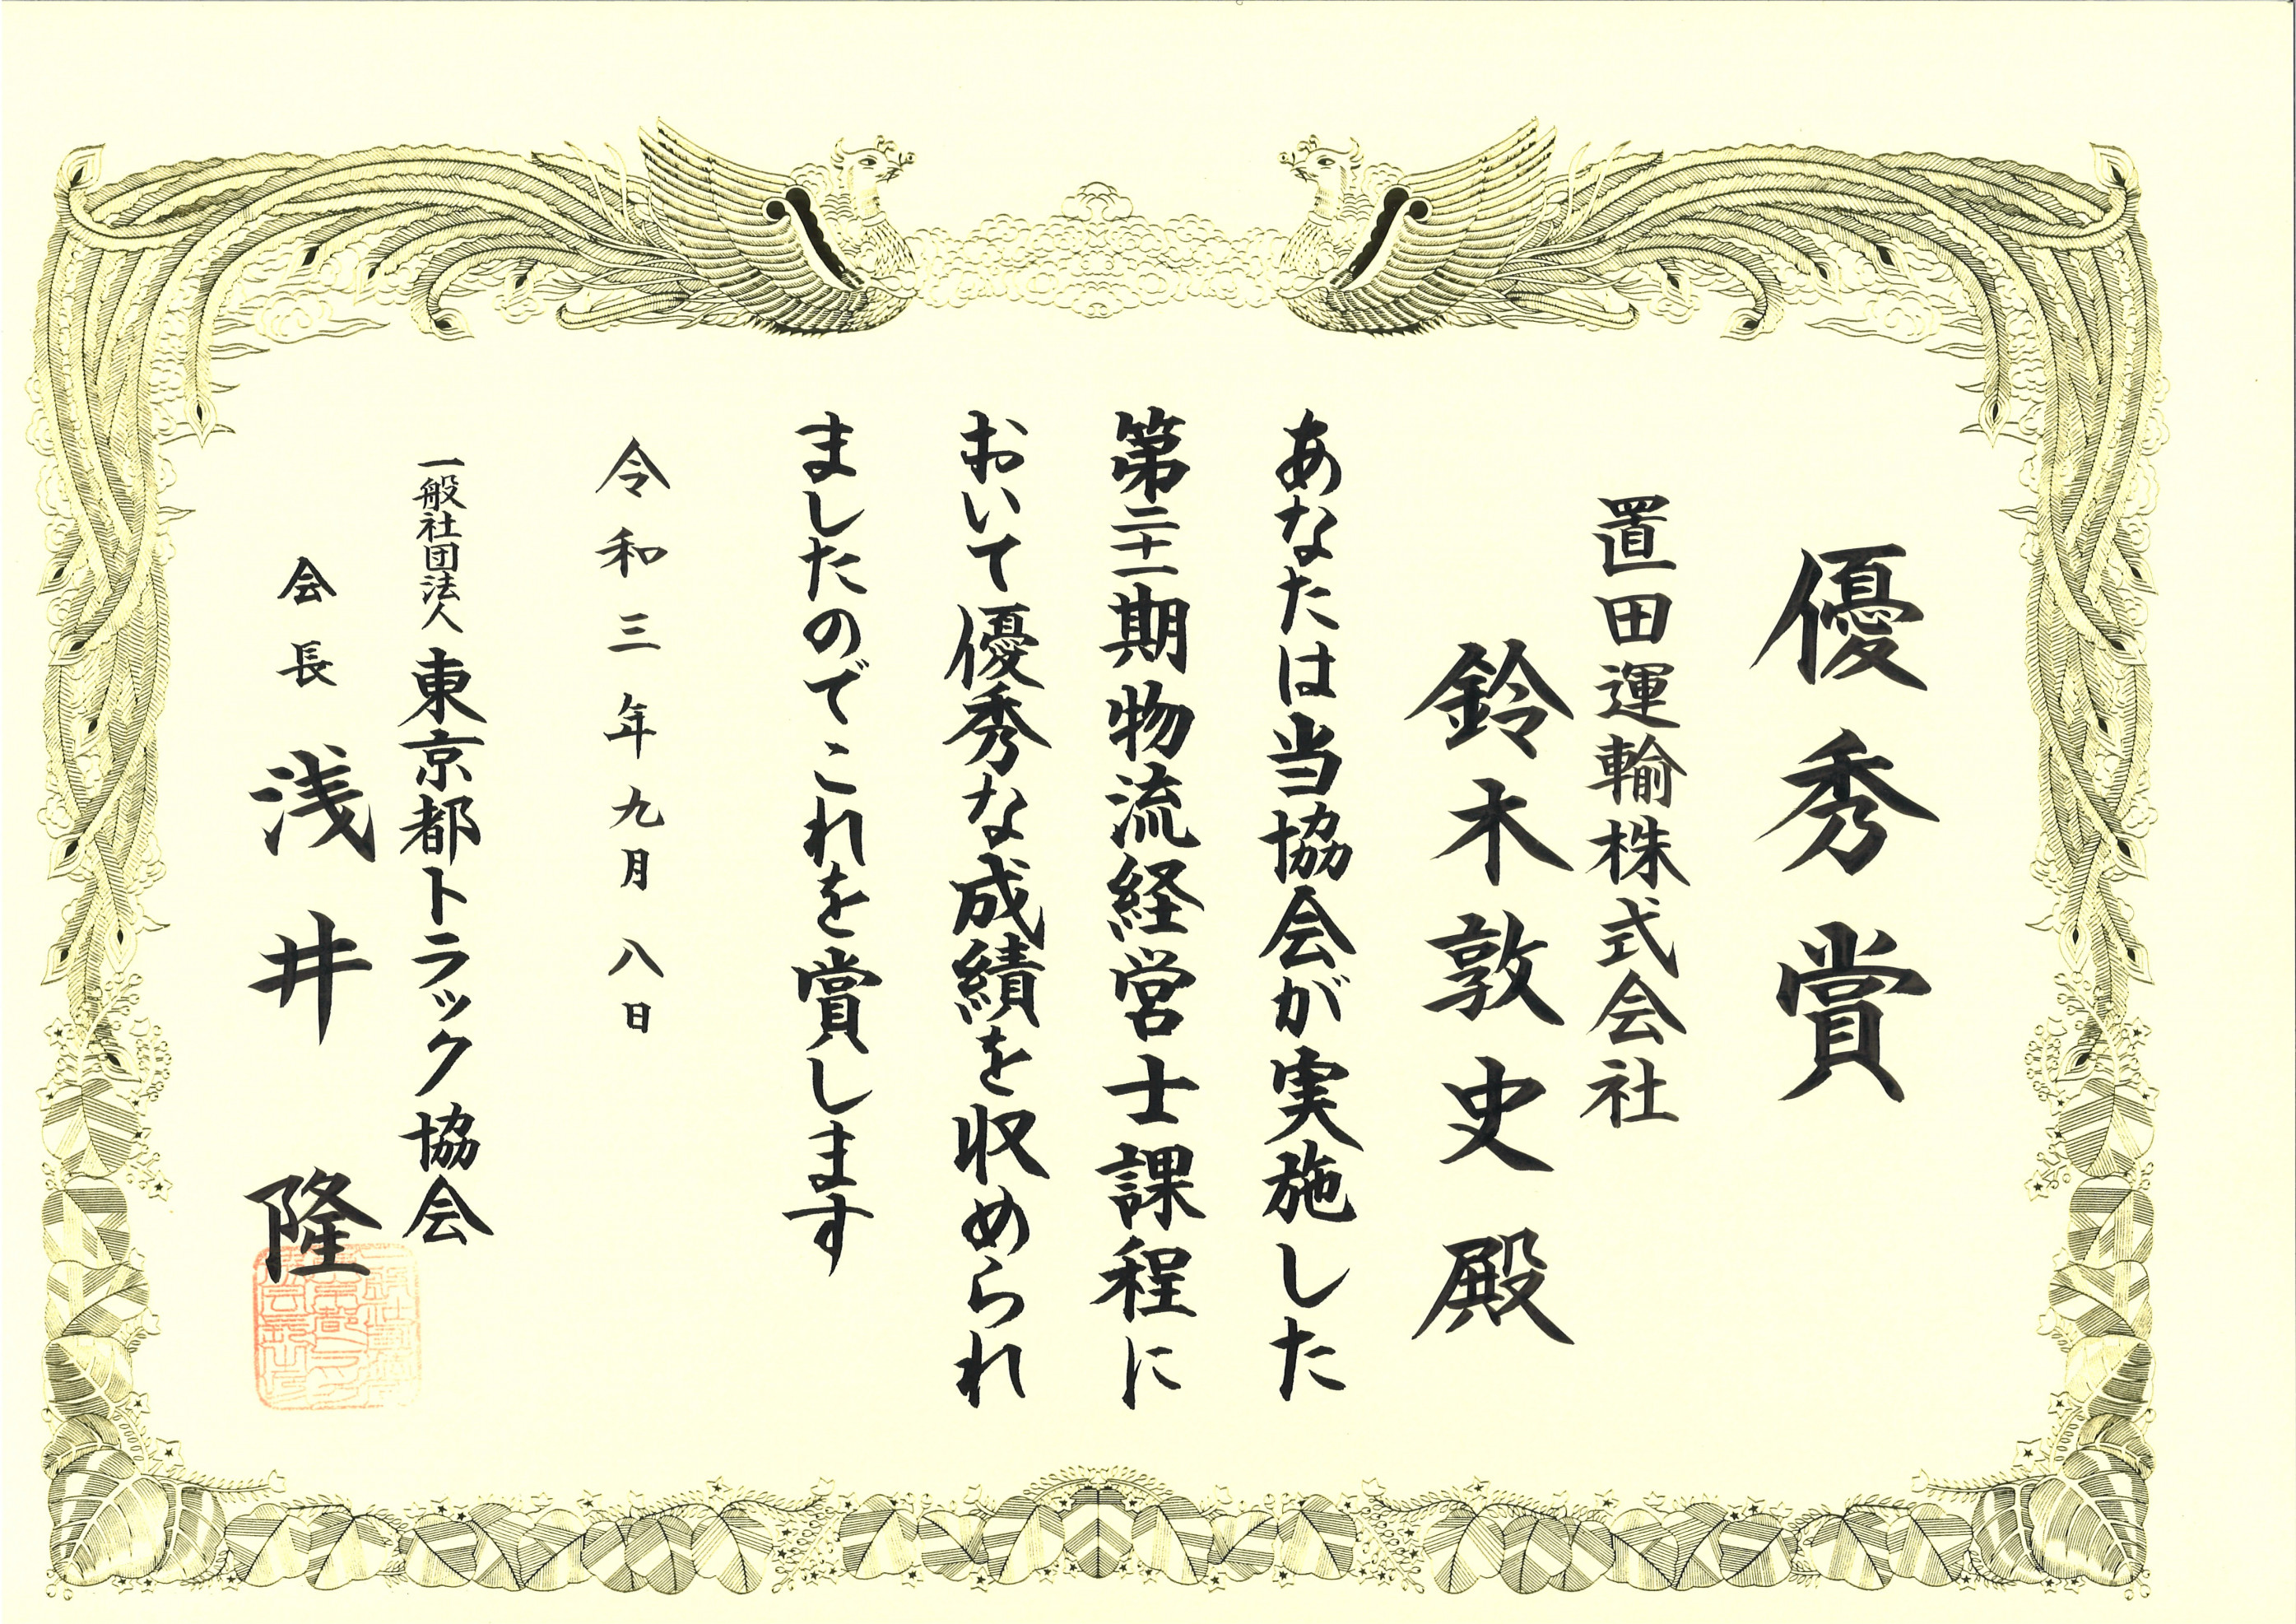 優秀賞
置田運輸株式会社
鈴木敦史殿
あなたは当協会が実施した
第二十一期物流経営士課程に
おいて優秀な成績を収められ
ましたのでこれを賞します
令和三年九月八日
一般社団法人東京都トラック協会
会長 浅井 隆